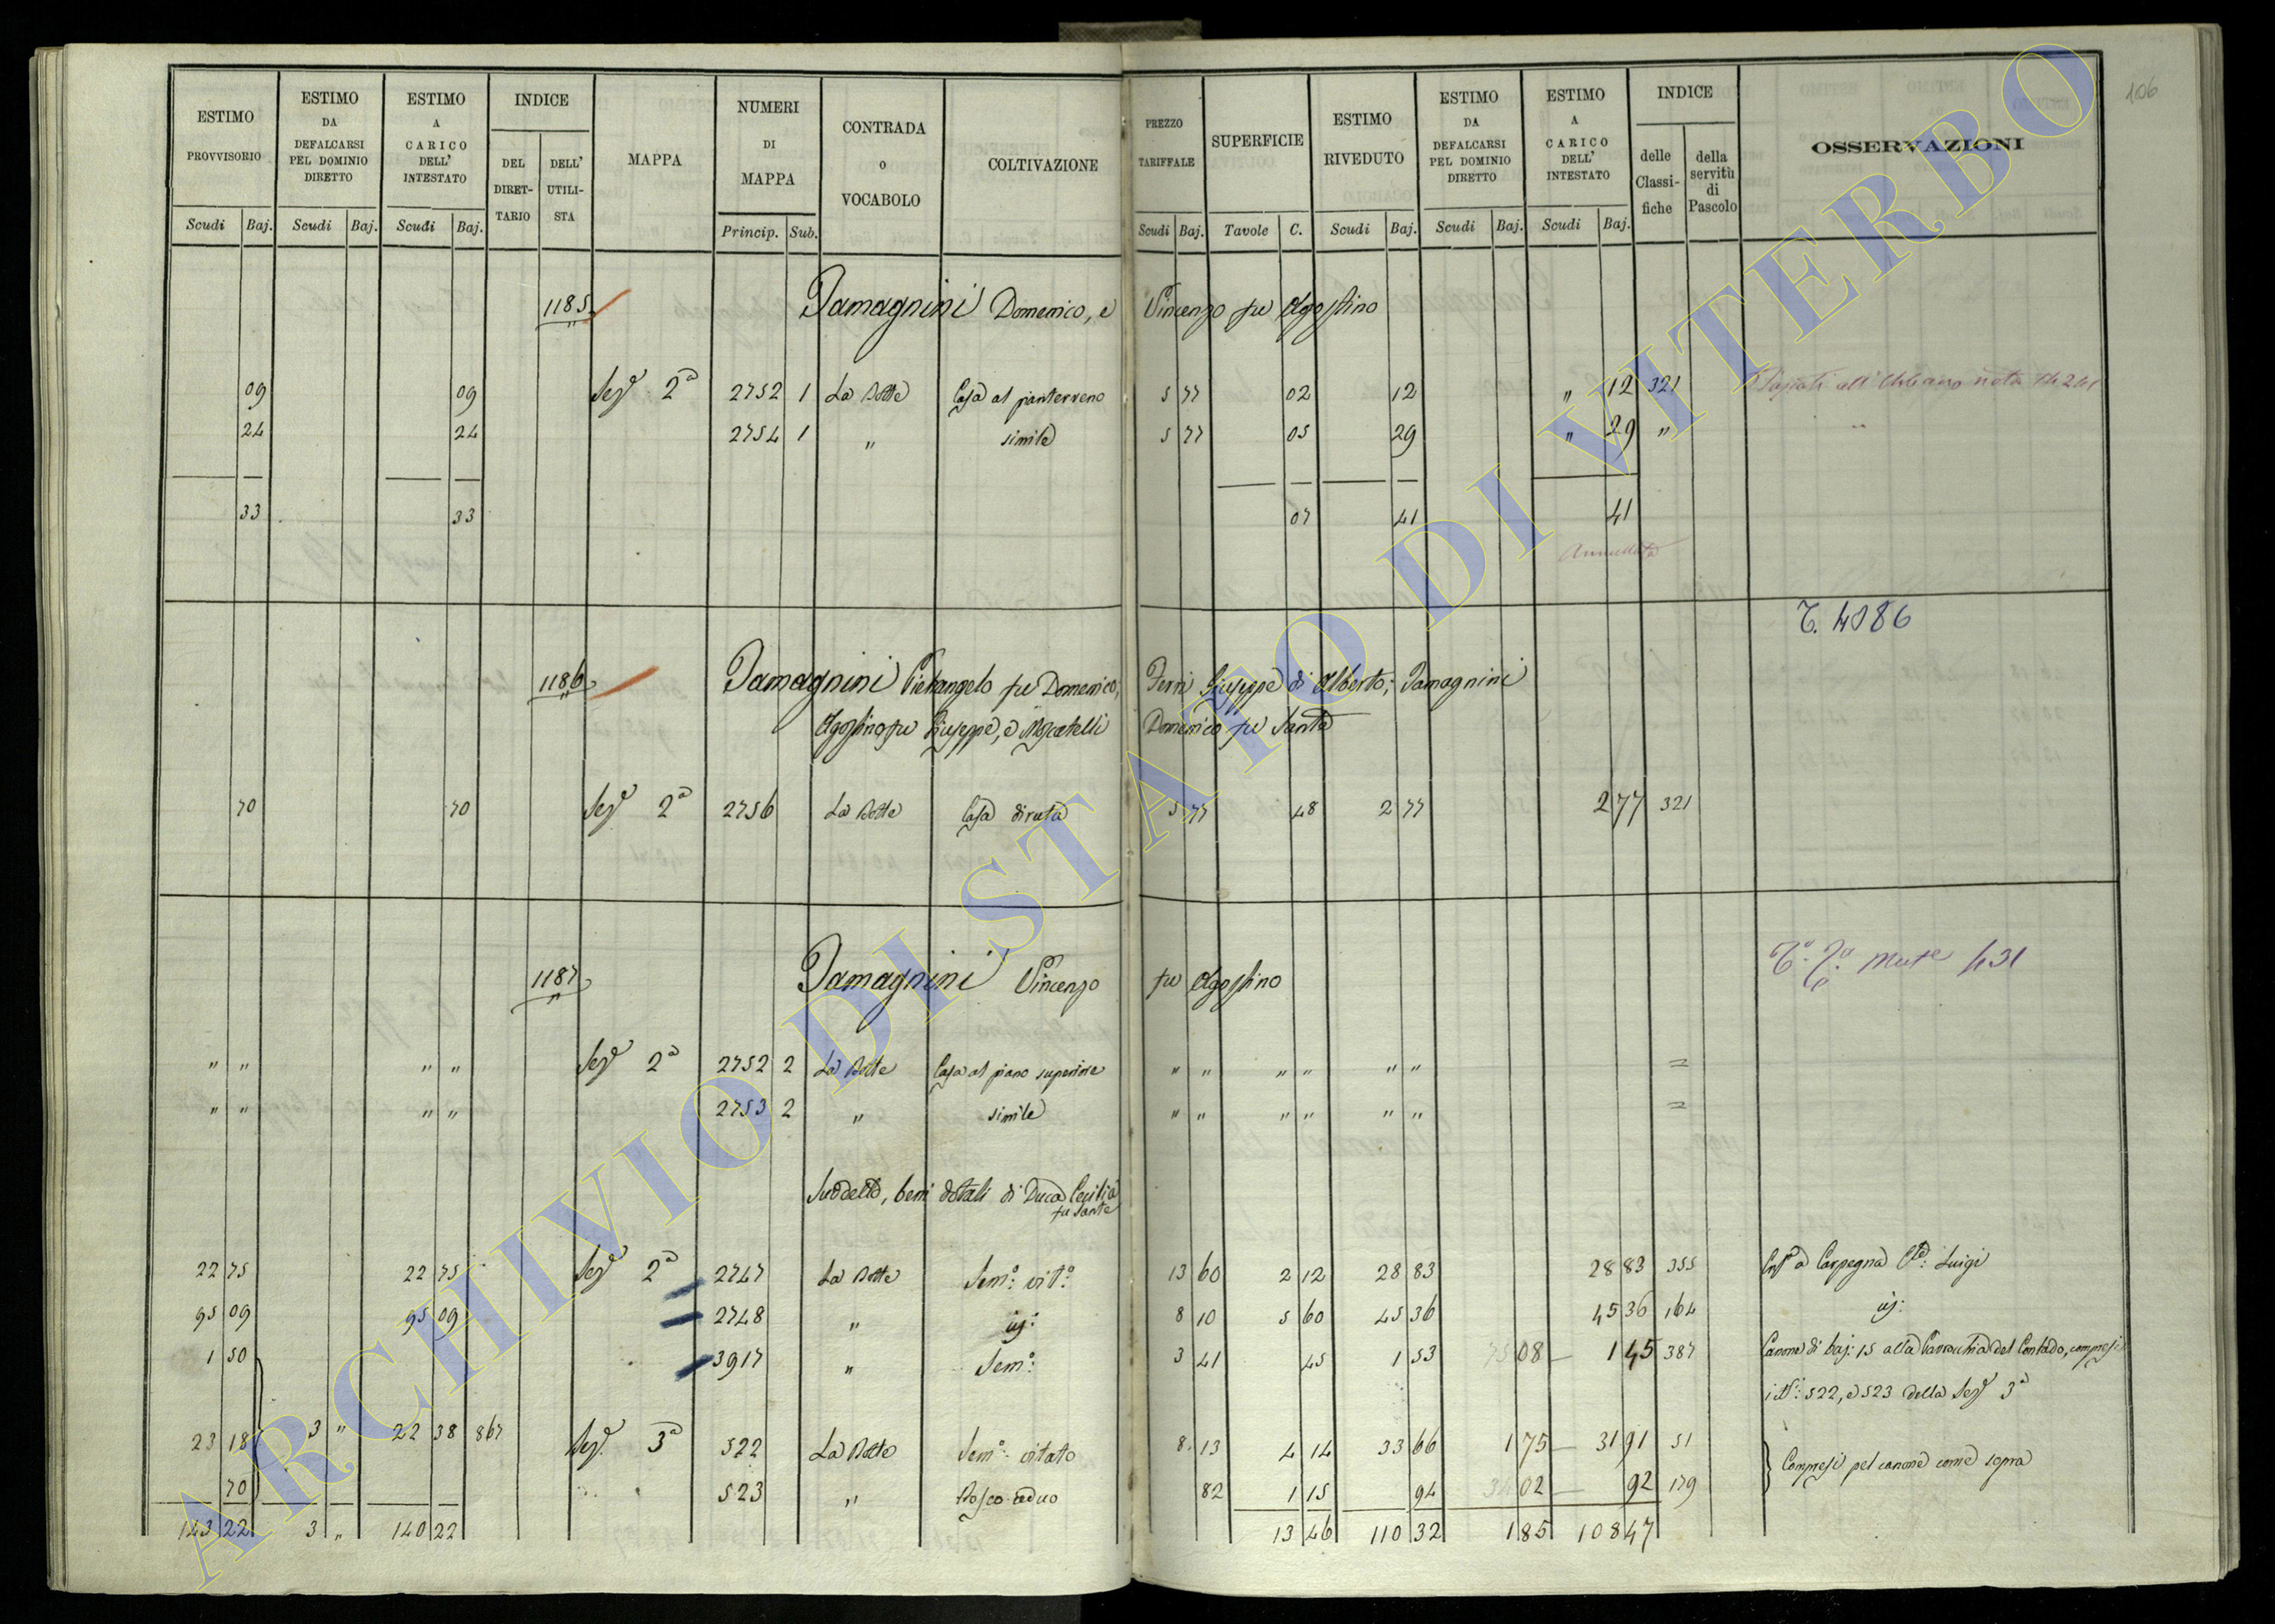 106
ESTIMO PROVVISORIO
ESTIMO DA DEFALCARSI PEL DOMINIO DIRETTO
ESTIMO A CARICO DELL' INTESTATO
INDICE
DEL DIRETTARIO
DELL' UTILISTA
MAPPA
NUMERI DI MAPPA
CONTRADA O VOCABOLO
COLTIVAZIONE
PREZZO TARIFFALE
SUPERFICIE
ESTIMO RIVEDUTO
ESTIMO DA DEFALCARSI PEL DOMINIO DIRETTO
ESTIMO A CARICO DELL' INTESTATO
INDICE
delle Classifiche
della servitù di Pascolo
OSSERVAZIONI
Scudi Baj. Scudi Baj. Scudi Baj. Princip. Sub. Scudi Baj. Tavole C. Scudi Baj. Scudi Baj. Scudi Baj.
1185 Tamagnini Domenico, e Vincenzo fu Agostino
09 09 Sez.e 2a 2752 1 La Botte Casa al pianterreno 5 77 02 12 " 12 321
24 24 2754 1 " simile 5 77 05 29 " 29 "
33 33 07 41 41
Annullata
T. 4986
1186 Tamagnini Pietrangelo fu Domenico; Perni Giuseppe di Alberto; Tamagnini
Agostino fu Giuseppe, e Moscatelli Domenico fu Sante
70 70 Sez.e 2a 2756 La Botte Casa diruta 5 77 48 2 77 2 77 321
1187 Tamagnini Vincenzo fu Agostino
" " " " Sez.e 2a 2752 2 La Botte Casa al piano superiore " " " " " " =
" " " " 2753 2 " simile " " " " " " =
Suddetto, beni dotali di Duca Cecilia fu Sante
22 75 22 75 Sez.e 2a 2747 La Botte Sem.o vit.o 13 60 2 12 28 83 28 83 355 Carpegna Luigi
95 09 95 09 2748 " 8 10 5 60 45 36 45 36 164
1 50 3917 " Sem.o 3 41 45 1 53 08 1 45 387 Canone di baj: 15 alla Parrocchia del Contado, compresi
i N.i 522, e 523 della Sez.e 3a
23 18 3 " 22 38 867 Sez.e 3a 522 La Botte Sem.o vitato 8 13 4 14 33 66 1 75 31 91 51 Compresi pel canone come sopra
70 523 " Bosco ceduo 82 1 15 94 02 92 179
143 22 3 " 140 22 13 46 110 32 1 85 108 47
ARCHIVIO DI STATO DI VITERBO